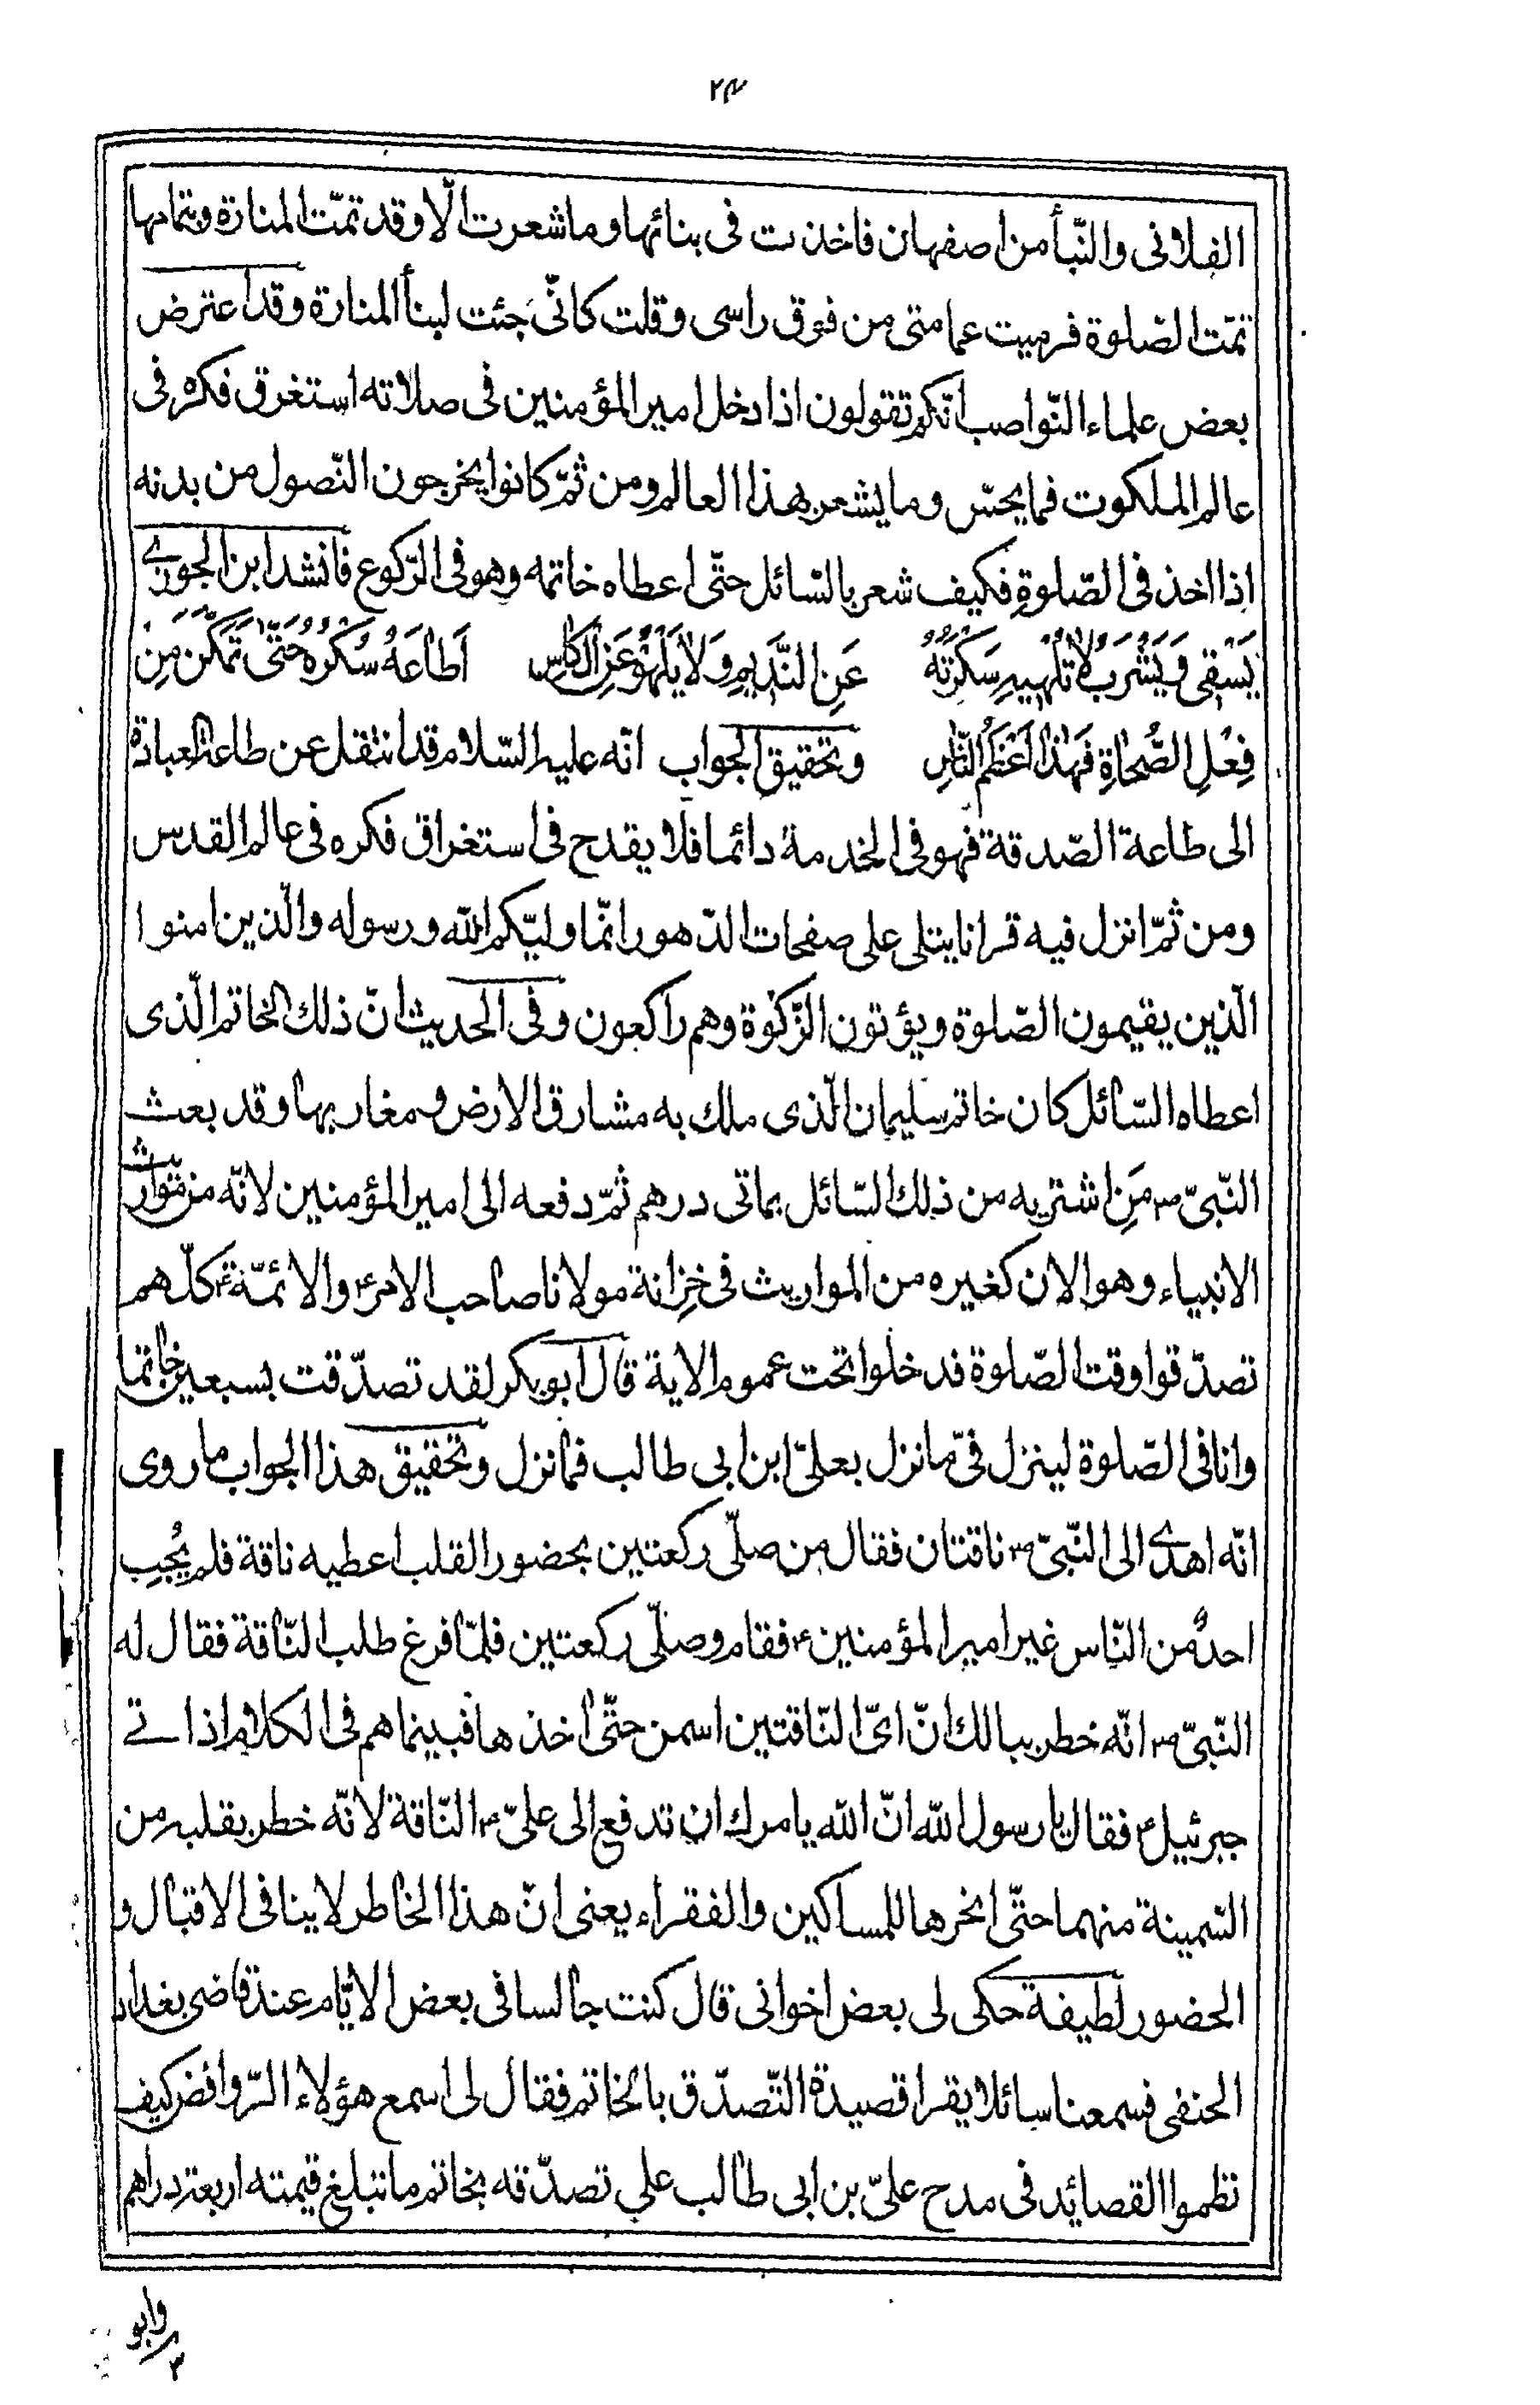 ٢٤
الفلانى والنّبأ من اصفهان فاخذت فى بنائها وما شعرت الّا وقد تمّت المنارة وبتمامها
تمّت الصّلوة فرميت عمامتى من فوق راسى وقلت كانّى جئت لبنأ المنارة وقد اعترض
بعض علماء النّواصب انّكم تقولون اذا دخل امير المؤمنين فى صلاته استغرق فكره فى
عالم الملكوت فما يحسّ وما يشعر بهذا العالم ومن ثمّ كانوا يخرجون النّصول من بدنه
اذا اخذ فى الصّلوةِ فكيف شعر بالسّائل حتّى اعطاه خاتمه وهو فى الرّكوع فانشد ابن الجوزى
يَسْقِى وَيَشْرَبُ لَا تُلْهِيهِ سَكْرَتُهُ عَنِ النَّدِيمِ وَلَا يَلْهُو عَنِ الْكَاسِ اَطَاعَهُ سُكْرُهُ حَتّٰى تَمَكَّنَ مِنْ
فِعْلِ الصُّحَاةِ فَهٰذَا اَعْظَمُ النَّاسِ وتحقيق الجواب انّه عليه السّلام قد انتقل عن طاعة العبادة
الى طاعة الصّدقة فهو فى الخدمة دائما فلا يقدح فى استغراق فكره فى عالم القدس
ومن ثمّ انزل فيه قرانا يتلى على صفحات الدّهور انّما وليّكم اللّه ورسوله والّذين امنوا
الّذين يقيمون الصّلوة ويؤتون الزّكوة وهم راكعون وفى الحديث انّ ذلك الخاتم الّذى
اعطاه السّائل كان خاتم سليمان الّذى ملك به مشارق الارض ومغاربها وقد بعث
النّبىّ ص مَن اشتريه من ذلك السّائل بماتى درهم ثمّ دفعه الى امير المؤمنين لانّه من مواريث
الانبياء وهو الان كغيره من المواريث فى خِزانة مولانا صاحب الامر ع والائمّة ع كلّهم
تصدّقوا وقت الصّلوة فدخلوا تحت عموم الاية قال ابو بكر لقد تصدّقت بسبعين خاتما
وانا فى الصّلوة لينزل فىّ ما نزل بعلىّ ابن ابى طالب فما نزل وتحقيق هذا الجواب ما روى
انّه اهدى الى النّبىّ ص ناقتان فقال من صلّى ركعتين بحضور القلب اعطيه ناقة فلم يُجِب
احدٌ من النّاس غير امير المؤمنين ع فقام وصلّى ركعتين فلمّا فرغ طلب النّاقة فقال له
النّبىّ ص انّه خطر ببالك انّ اىّ النّاقتين اسمن حتّى اخذها فبينما هم فى الكلام اذ اتى
جبرئيل ع فقال يا رسول اللّه انّ اللّه يامرك ان تدفع الى علىّ ع النّاقة لانّه خطر بقلبه من
السّمينة منهما حتّى انحرها للمساكين والفقراء يعنى انّ هذا الخاطر لا ينافى الاقبال و
الحضور لطيفة حكى لى بعض اخوانى قال كنت جالسا فى بعض الايّام عند قاضى بغداد
الحنفى فسمعنا سائلا يقرا قصيدة التّصدّق بالخاتم فقال لى اسمع هؤلاء الرّوافض كيف
نظموا القصائد فى مدح علىّ بن ابى طالب على تصدّقه بخاتم ما تبلغ قيمته اربعة دراهم
وابو
٣